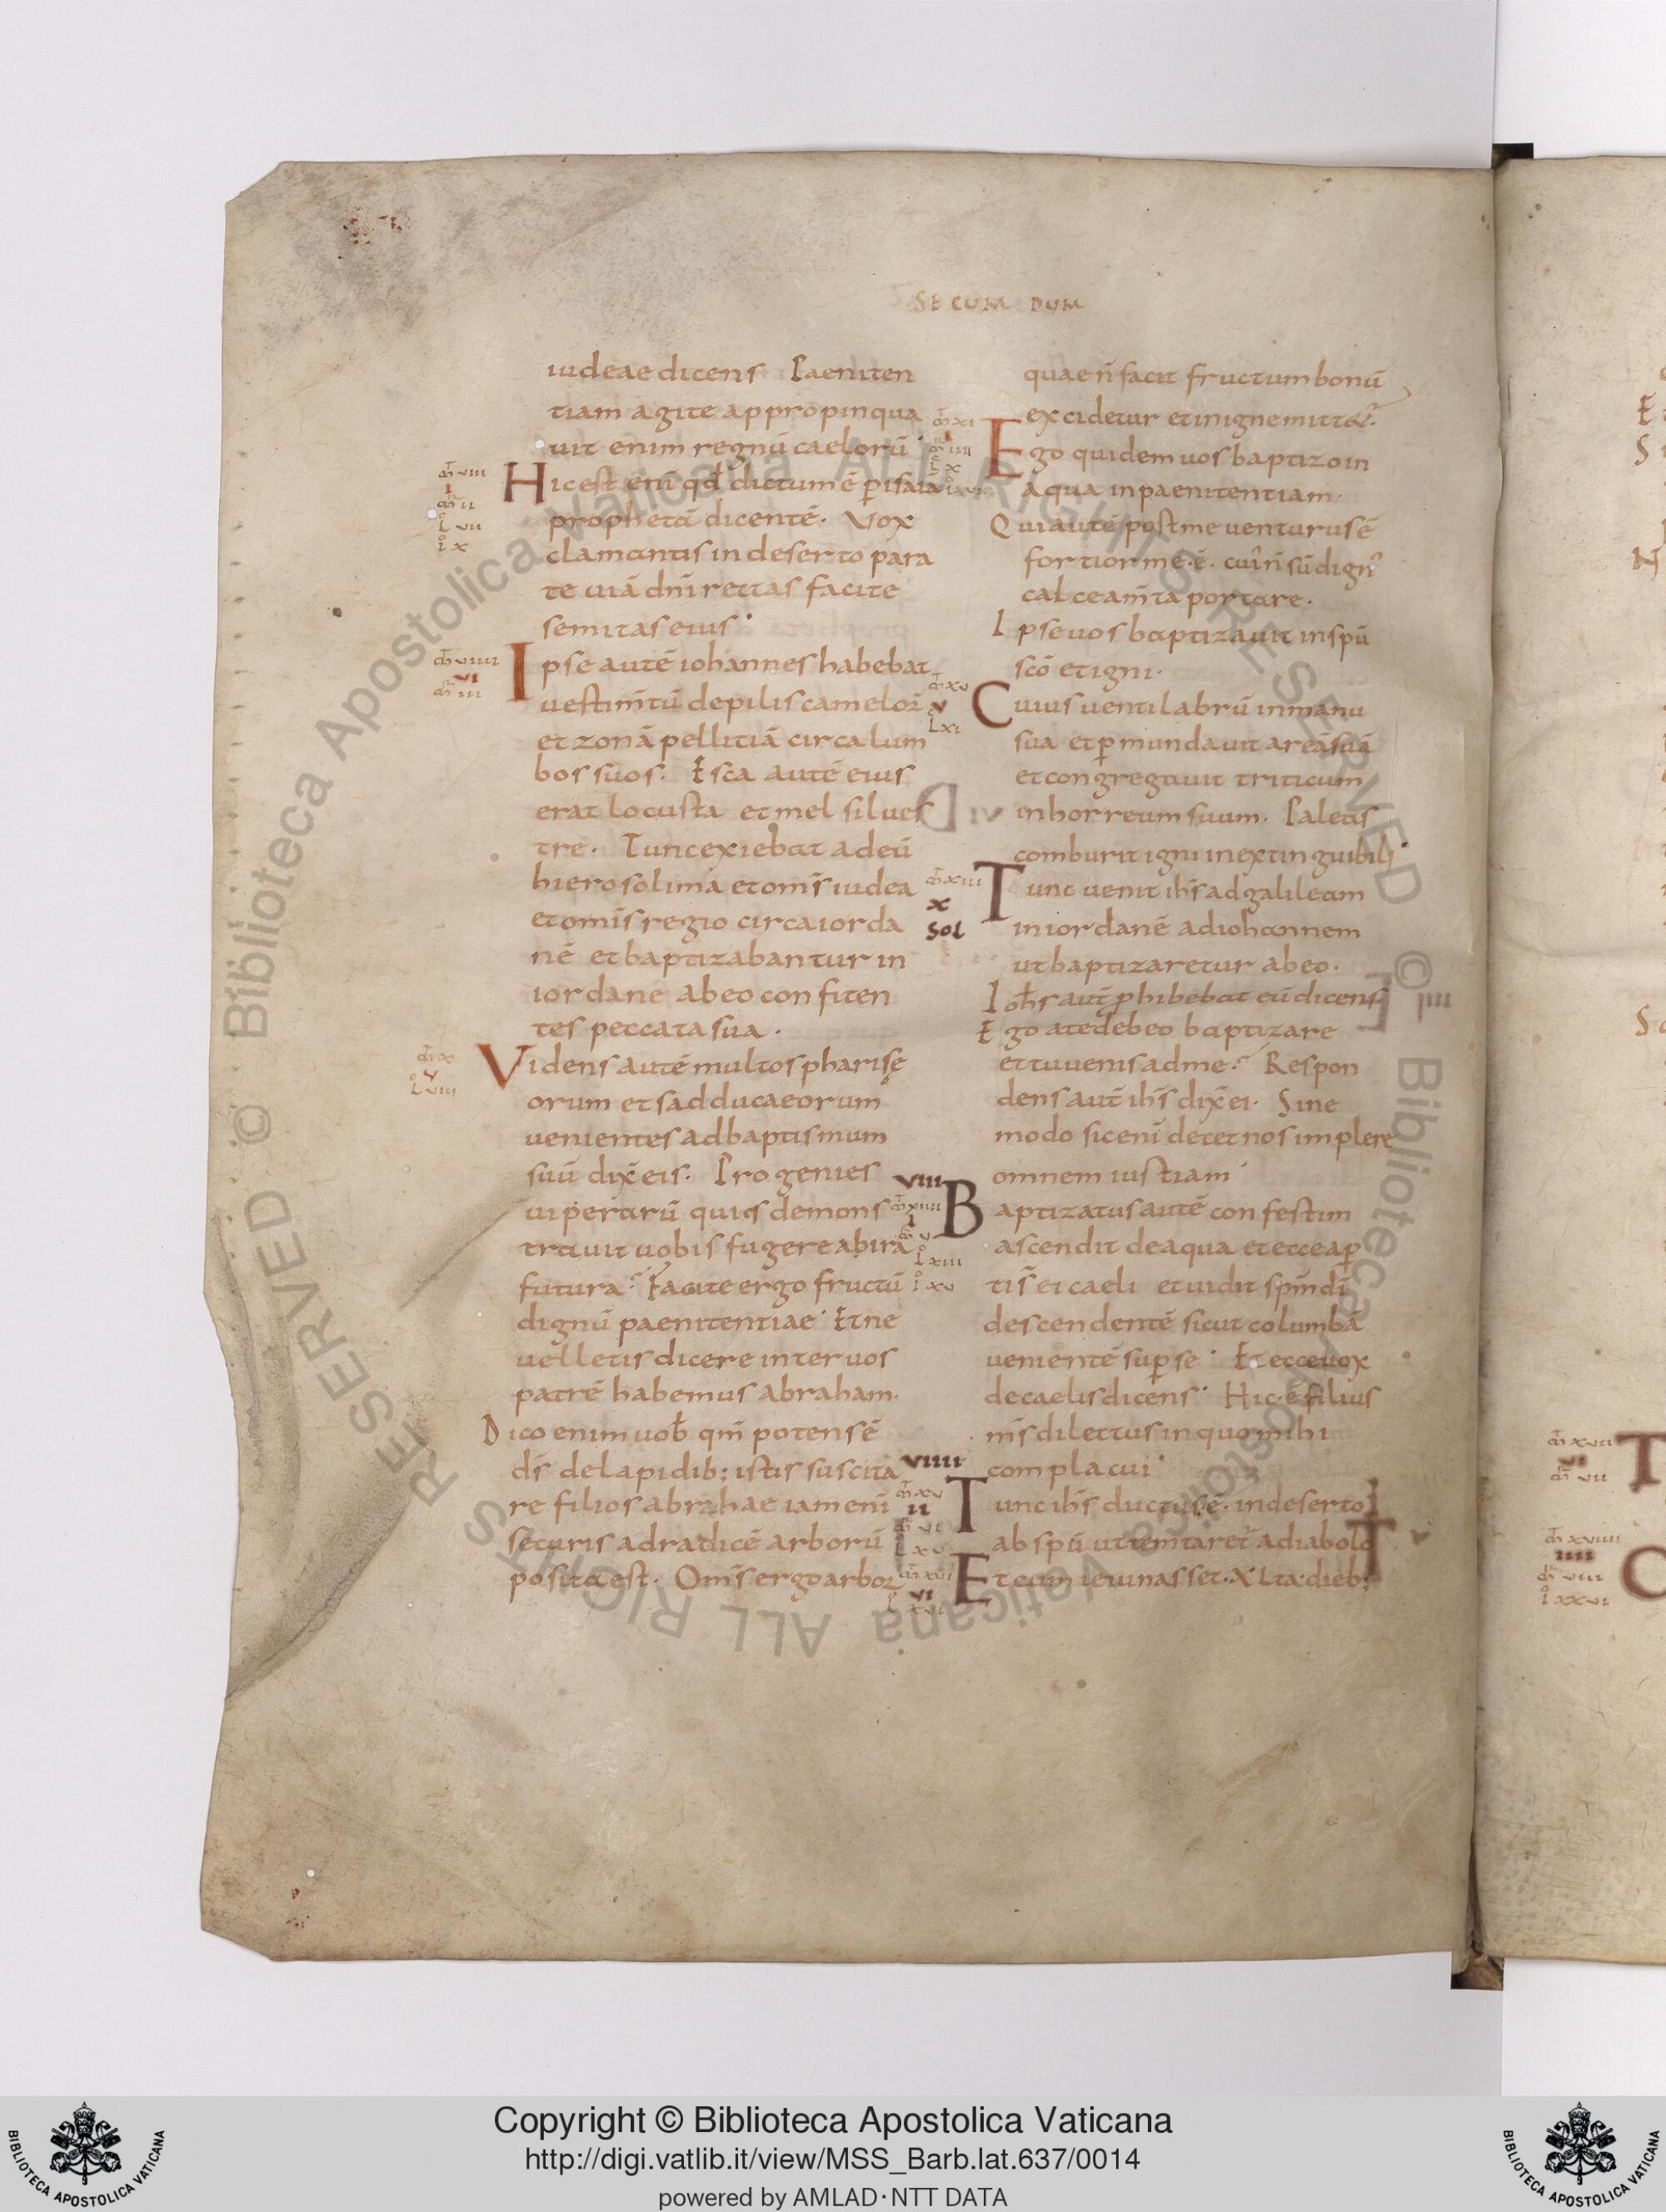 SECUM DUM
iudeae dicens Paeniten
tiam agite appropinqua
uit enim regnū caelorū
Hic est enī qd̄ dictum ē p̄ isaia
prophetā dicentē. Vox
clamantis in deserto para
te uiā dn̄i rectas facite
semitas eius
Ipse autē iohannes habebat
uestim̄tū de pilis camelor̄
et zonā pelliciā circa lum
bos suos. Esca autē eius
erat locusta et mel silues
tre. Tunc exiebat ad eū
hierosolima et om̄s iudea
et om̄is regio circa iorda
nē et baptizabantur in
iordane ab eo confiten
tes peccata sua.
Videns autē multos pharisę
orum et sadducaeorum
uenientes ad baptismum
suū dix̄ eis. Progenies
uiperarū quis demons
trauit uobis fugere ab ira
futura. Facite ergo fructū
dignū paenitentiae Et ne
uelletis dicere inter uos
patrē habemus abraham.
Dico enim uob̄ qm̄ potens ē
ds̄ de lapidib; istis suscita
re filios abrahae iam enī
securis ad radicē arborū
posita est. Om̄s ergo arbor
quae n̄ facit fructum bonū
excidetur et in igne mittet̄
Ego quidem uos baptizo in
aqua in paenitentiam.
Qui autē post me uenturus ē
fortior me .ē. cui' n̄ sū dign'
calceam̄ta portare.
Ipse uos baptizauit in spū
scō et igni.
Cuius uentilabrū in manu
sua et p̄mundauit areā suā
et congregauit triticum
in horreum suum. Paleas
comburit igni inextinguibili
Tunc uenit ihs̄ ad galileam
in iordanē ad iohannem
ut baptizaretur ab eo.
Ioh̄s aut̄ phibebat eū dicens
Ego a te debeo baptizare
et tu uenis ad me. Respon
dens aut̄ ihs̄ dix̄ ei. Sine
modo sic enī decet nos implere
omnem iustiam
Baptizatus autē confestim
ascendit de aqua et ecce ap̄
tis̄ ei caeli et uidit spm̄ dī
descendentē sicut columbā
uenientē sup̄ se Et ecce uox
de caelis dicens Hic .ē filius
ms̄ dilectus in quo mihi
complacui
Tunc ihs̄ ductus ē. in deserto
ab spū ut temtaret̄ a diabolo
Et cum ieiunasset. XLta dieb;
VIII
VIIII
Copyright © Biblioteca Apostolica Vaticana
http://digi.vatlib.it/view/MSS_Barb.lat.637/0014
powered by AMLAD·NTT DATA
BIBLIOTECA APOSTOLICA VATICANA
BIBLIOTECA APOSTOLICA VATICANA
© Biblioteca Apostolica Vaticana ALL RIGHTS RESERVED
© Biblioteca Apostolica Vaticana ALL RIGHTS RESERVED